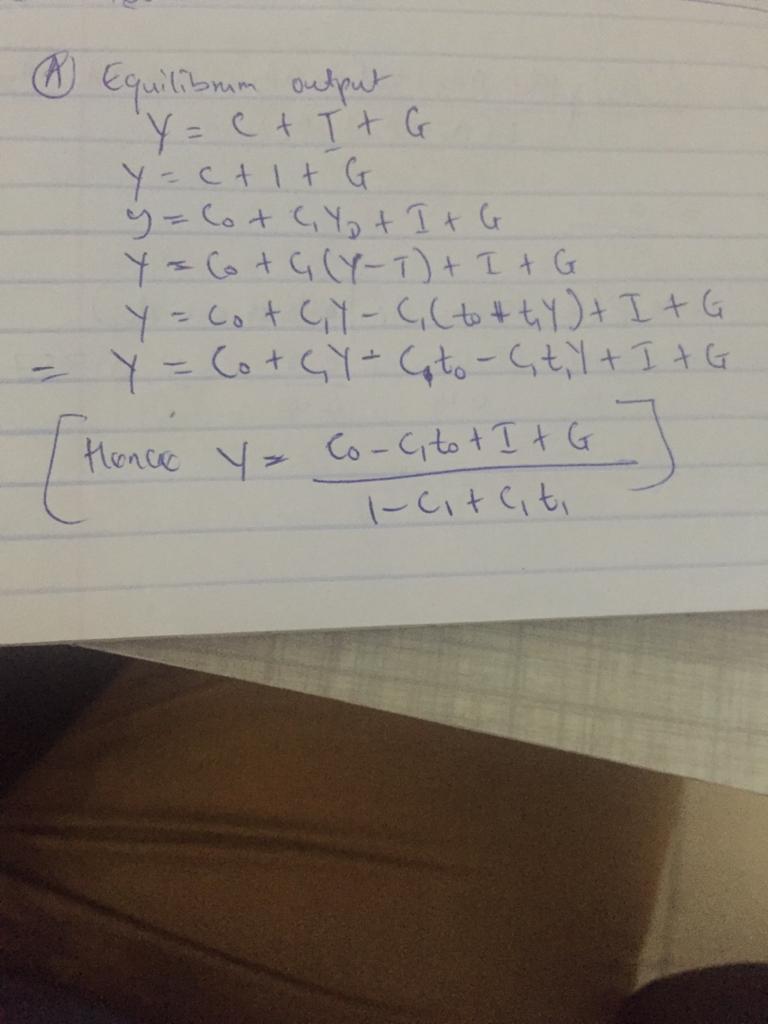 (A) Equilibrium output
Y = C + I + G
Y = C + I + G
y = C₀ + C₁Y_D + I + G
Y = C₀ + C₁(Y-T) + I + G
Y = C₀ + C₁Y - C₁(t₀ + t₁Y) + I + G
= Y = C₀ + C₁Y - C₁t₀ - C₁t₁Y + I + G
[Hence Y = C₀ - C₁t₀ + I + G]
1 - C₁ + C₁t₁